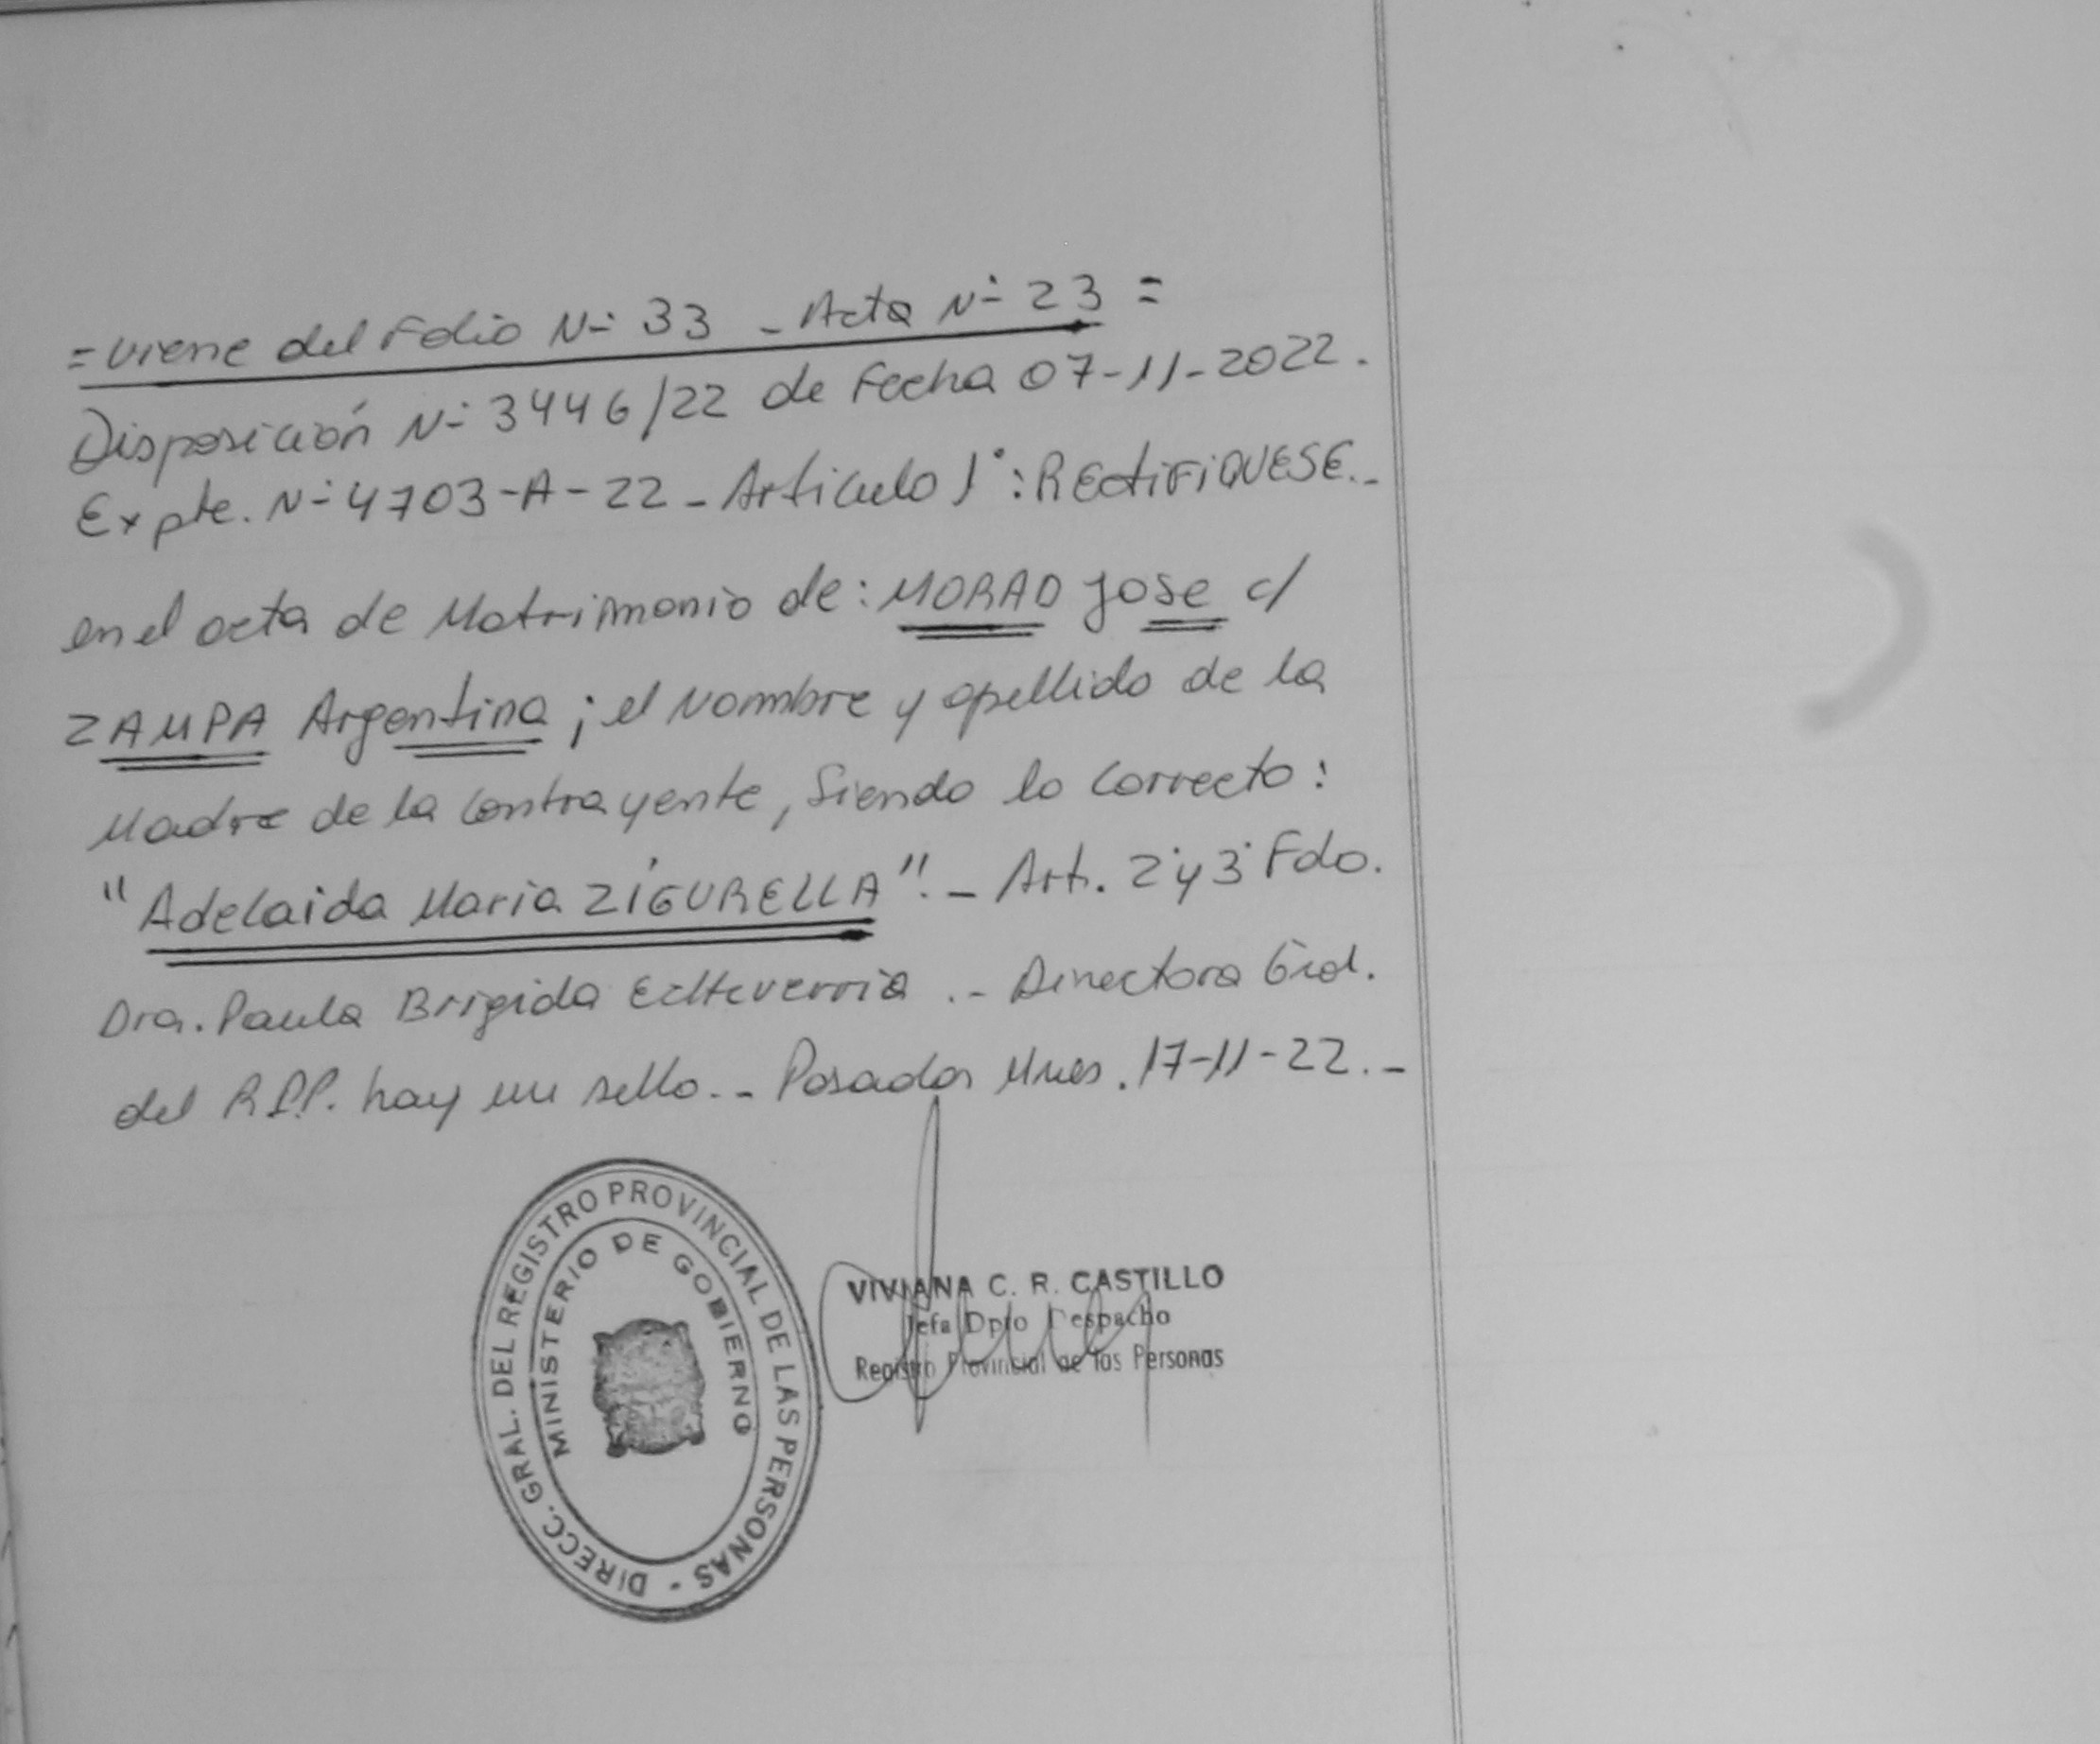 = Viene del Folio N° 33 - Acta N° 23 =
Disposición N° 3446/22 de Fecha 07-11-2022.
Expte. N° 4703-A-22 - Articulo 1°: RECtiFiQUESE.-
en el acta de Matrimonio de: MORAD Jose c/
ZAMPA Argentina ; el Nombre y apellido de la
Madre de la Contrayente, Siendo lo Correcto:
"Adelaida Maria ZÍGURELLA".- Art. 2° y 3° Fdo.
Dra. Paula Brigida Echeverria .- Directora Gral.
del R.P.P. hay un sello.- Posadas Mnes. 17-11-22.-
DIRECC. GRAL. DEL REGISTRO PROVINCIAL DE LAS PERSONAS -
MINISTERIO DE GOBIERNO
VIVIANA C. R. CASTILLO
Jefa Dpto Despacho
Registro Provincial de las Personas